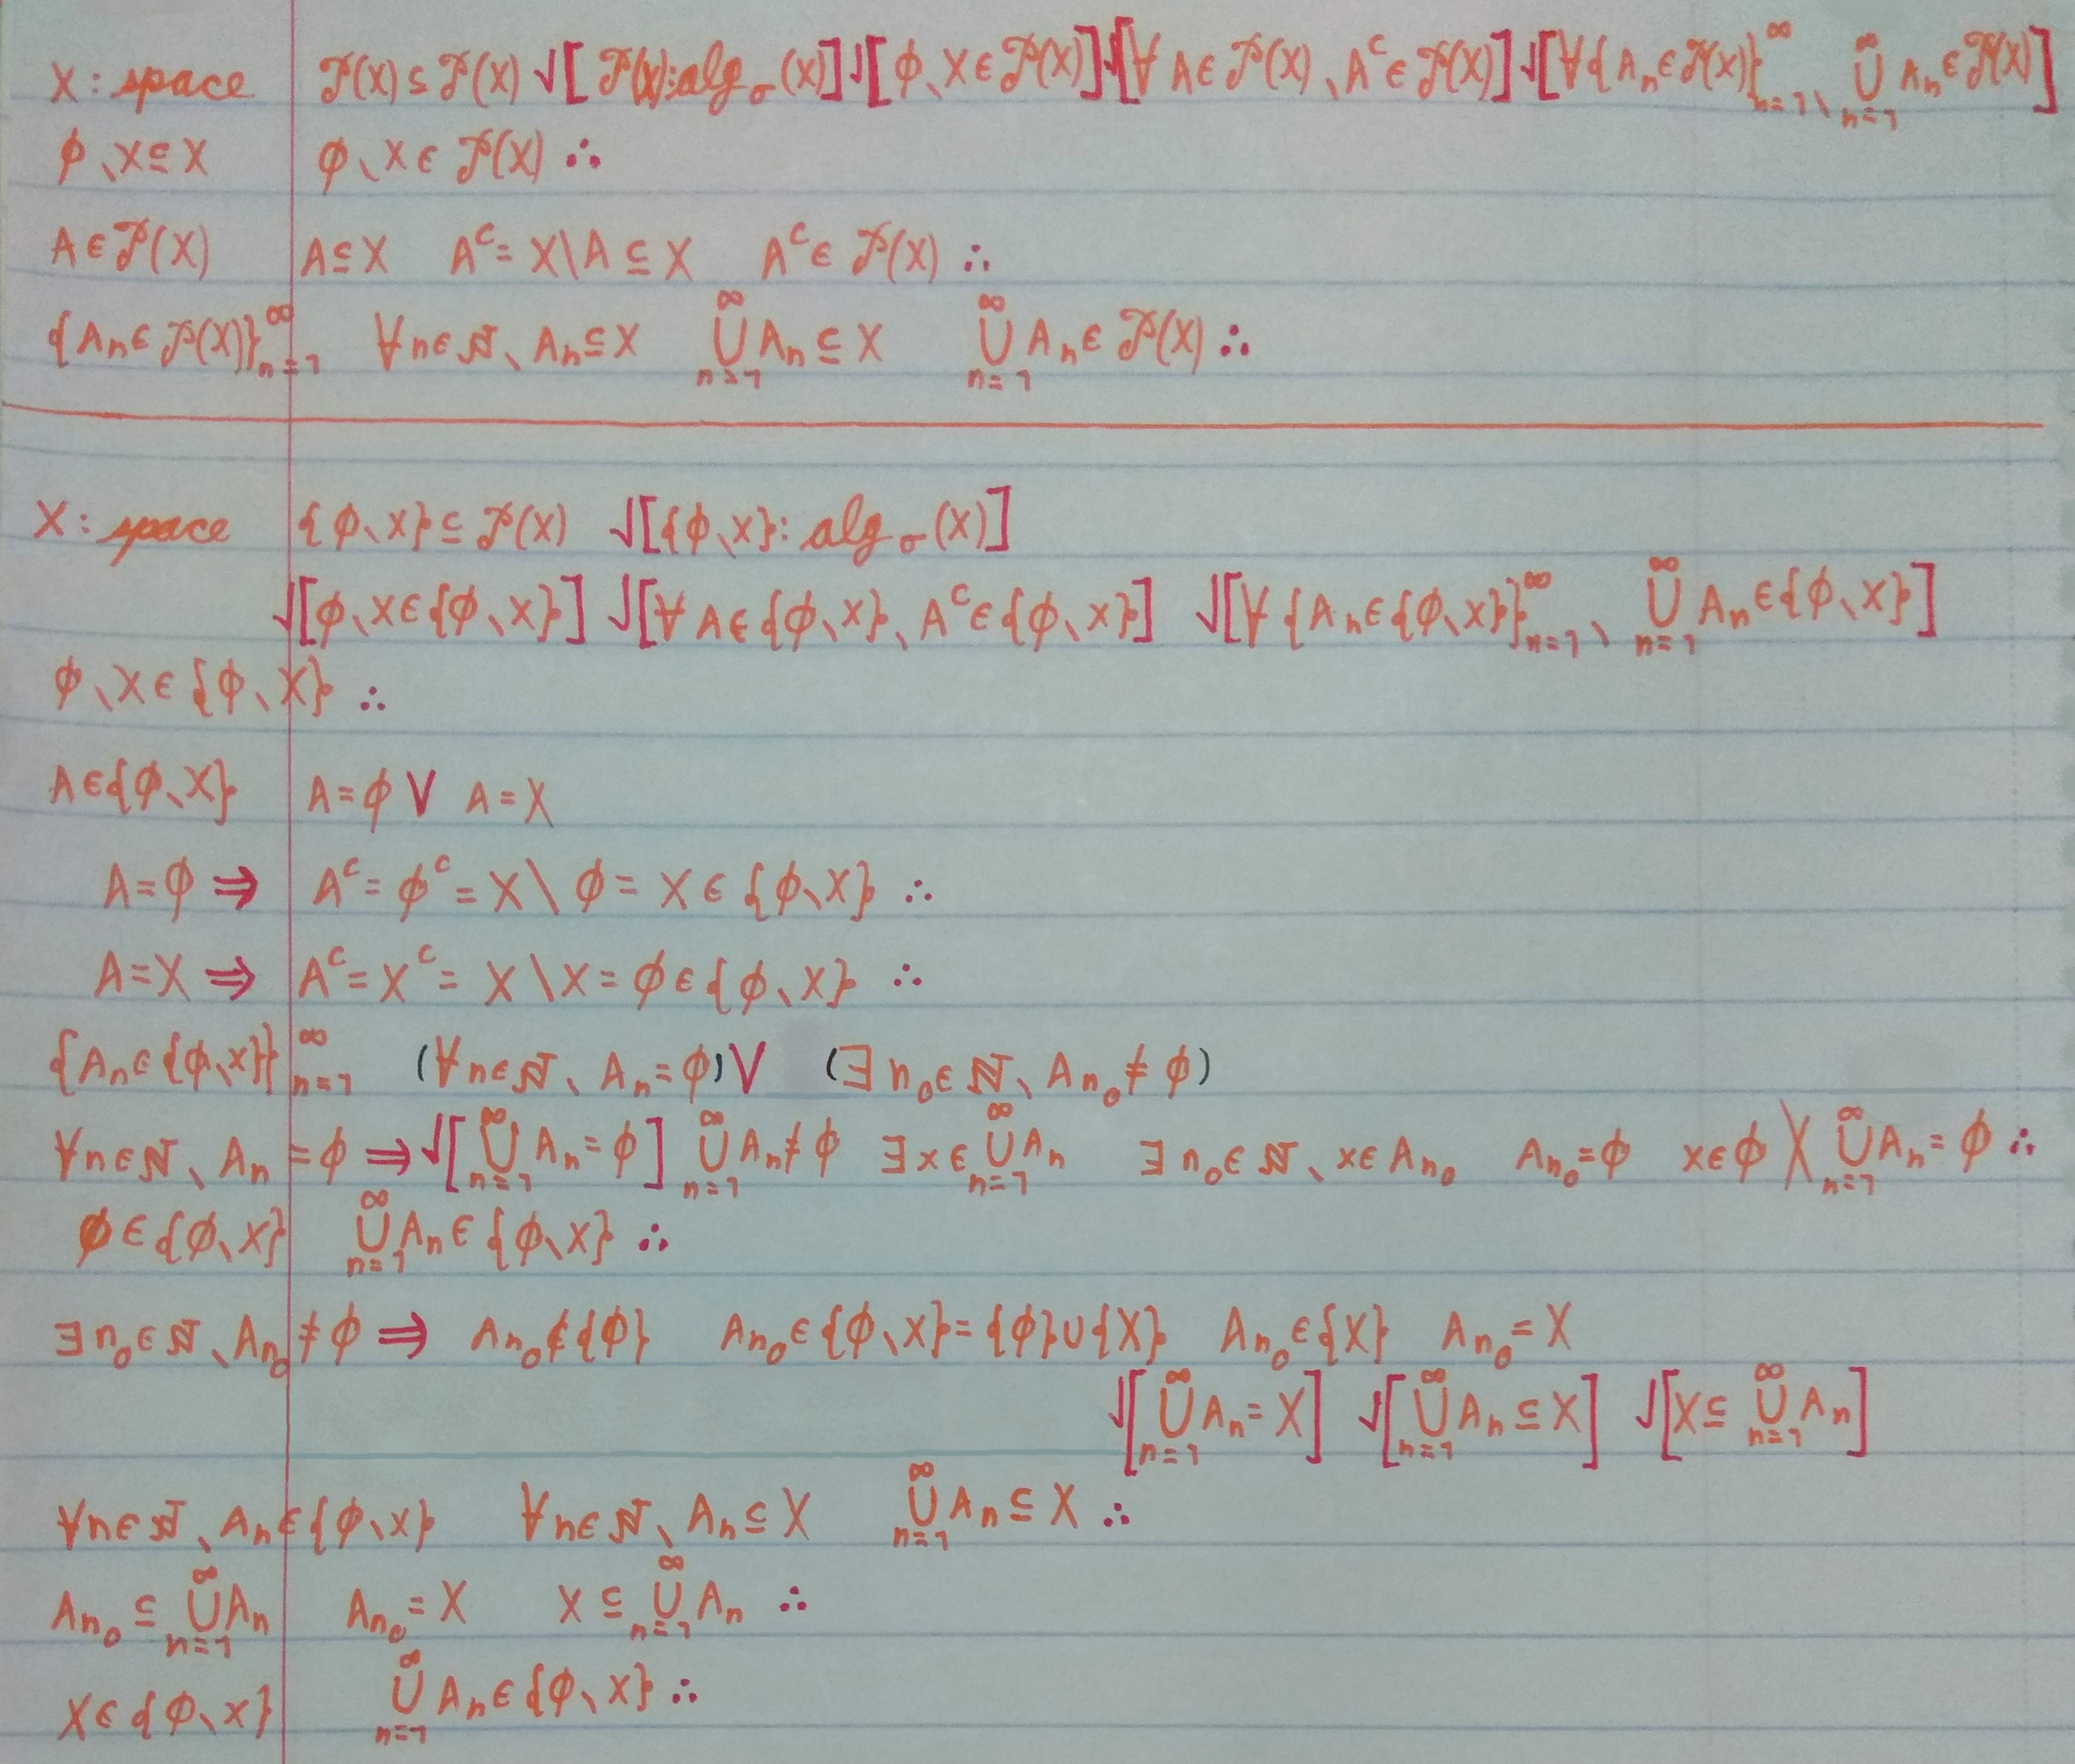 X: space 𝒫(X)⊆𝒫(X) √[𝒫(X):alg_σ(X)] √[ϕ、X∈𝒫(X)] √[∀A∈𝒫(X)、A^c∈𝒫(X)] √[∀{A_n∈𝒫(X)}_{n=1}^∞、⋃_{n=1}^∞ A_n∈𝒫(X)]
ϕ、X⊆X ϕ、X∈𝒫(X) ∴
A∈𝒫(X) A⊆X A^c=X\A⊆X A^c∈𝒫(X) ∴
{A_n∈𝒫(X)}_{n=1}^∞ ∀n∈ℕ、A_n⊆X ⋃_{n=1}^∞ A_n⊆X ⋃_{n=1}^∞ A_n∈𝒫(X) ∴
X: space {ϕ、X}⊆𝒫(X) √[{ϕ、X}: alg_σ(X)]
√[ϕ、X∈{ϕ、X}] √[∀A∈{ϕ、X}、A^c∈{ϕ、X}] √[∀{A_n∈{ϕ、X}}_{n=1}^∞、⋃_{n=1}^∞ A_n∈{ϕ、X}]
ϕ、X∈{ϕ、X} ∴
A∈{ϕ、X} A=ϕ ∨ A=X
A=ϕ ⇒ A^c=ϕ^c=X\ϕ=X∈{ϕ、X} ∴
A=X ⇒ A^c=X^c=X\X=ϕ∈{ϕ、X} ∴
{A_n∈{ϕ、X}}_{n=1}^∞ (∀n∈ℕ、A_n=ϕ) ∨ (∃n_0∈ℕ、A_{n_0}≠ϕ)
∀n∈ℕ、A_n=ϕ ⇒ √[⋃_{n=1}^∞ A_n=ϕ] ⋃_{n=1}^∞ A_n≠ϕ ∃x∈⋃_{n=1}^∞ A_n ∃n_0∈ℕ、x∈A_{n_0} A_{n_0}=ϕ x∈ϕ ╳ ⋃_{n=1}^∞ A_n=ϕ ∴
ϕ∈{ϕ、X} ⋃_{n=1}^∞ A_n∈{ϕ、X} ∴
∃n_0∈ℕ、A_{n_0}≠ϕ ⇒ A_{n_0}∉{ϕ} A_{n_0}∈{ϕ、X}={ϕ}∪{X} A_{n_0}∈{X} A_{n_0}=X
√[⋃_{n=1}^∞ A_n=X] √[⋃_{n=1}^∞ A_n⊆X] √[X⊆⋃_{n=1}^∞ A_n]
∀n∈ℕ、A_n∈{ϕ、X} ∀n∈ℕ、A_n⊆X ⋃_{n=1}^∞ A_n⊆X ∴
A_{n_0}⊆⋃_{n=1}^∞ A_n A_{n_0}=X X⊆⋃_{n=1}^∞ A_n ∴
X∈{ϕ、X} ⋃_{n=1}^∞ A_n∈{ϕ、X} ∴